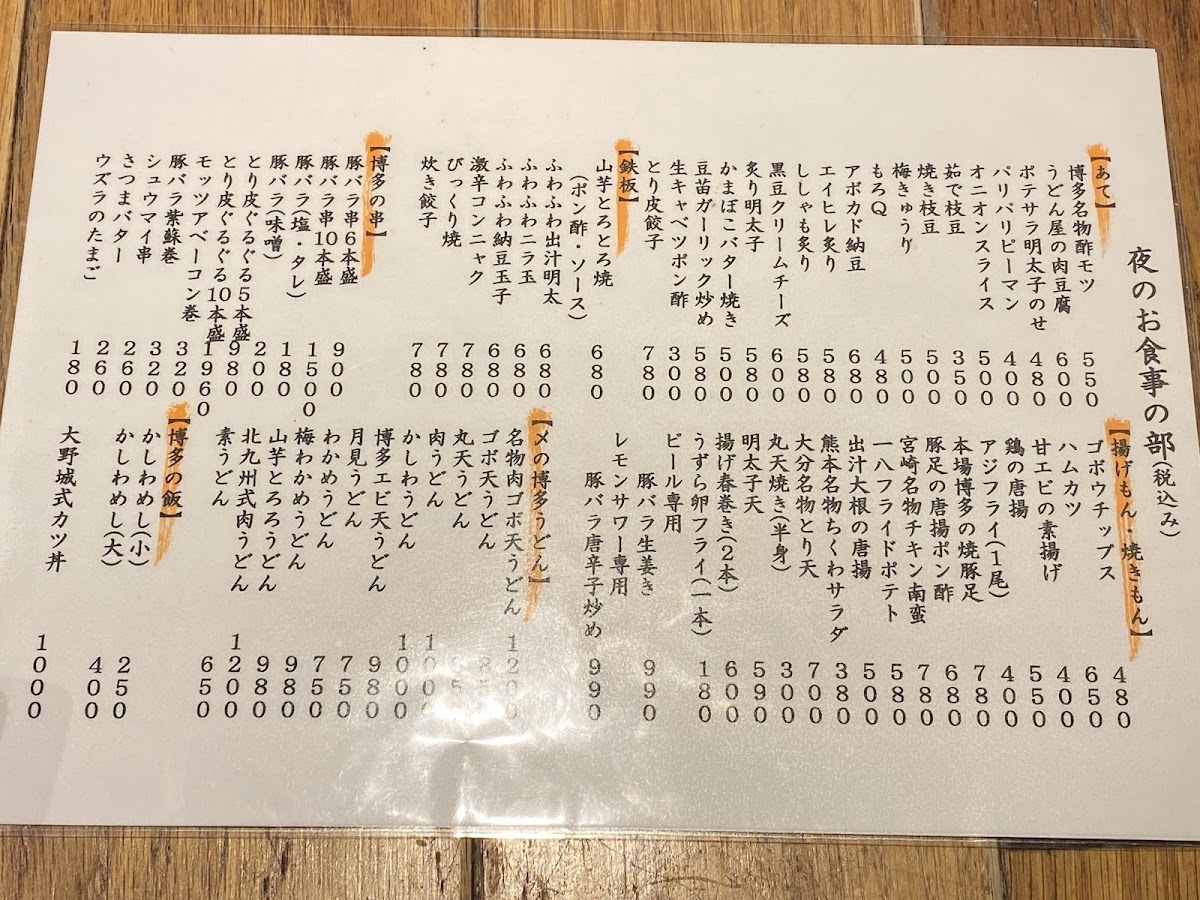 夜のお食事の部(税込み)
【あて】
博多名物酢モツ 550
うどん屋の肉豆腐 600
ポテサラ明太子のせ 480
パリパリピーマン 400
オニオンスライス 500
茹で枝豆 350
焼き枝豆 500
梅きゅうり 500
もろQ 480
アボカド納豆 680
エイヒレ炙り 580
ししゃも炙り 580
黒豆クリームチーズ 600
炙り明太子 580
かまぼこバター焼き 500
豆苗ガーリック炒め 580
生キャベツポン酢 300
とり皮餃子 780
【鉄板】
山芋とろとろ焼
(ポン酢・ソース) 680
ふわふわ出汁明太 680
ふわふわニラ玉 680
ふわふわ納豆玉子 680
激辛コンニャク 780
びっくり焼 780
炊き餃子 780
【博多の串】
豚バラ串6本盛 900
豚バラ串10本盛 1500
豚バラ(塩・タレ) 180
豚バラ(味噌) 200
とり皮ぐるぐる5本盛 980
とり皮ぐるぐる10本盛 1960
モッツアベーコン巻 320
豚バラ紫蘇巻 320
シュウマイ串 260
さつまバター 260
ウズラのたまご 180
【揚げもん・焼きもん】
ゴボウチップス 480
ハムカツ 650
甘エビの素揚げ 400
鶏の唐揚 550
アジフライ(1尾) 400
本場博多の焼豚足 780
豚足の唐揚ポン酢 680
宮崎名物チキン南蛮 780
一八フライドポテト 580
出汁大根の唐揚 500
熊本名物ちくわサラダ 380
大分名物とり天 700
丸天焼き(半身) 300
明太子天 590
揚げ春巻き(2本) 600
うずら卵フライ(一本) 180
ビール専用
豚バラ生姜き 990
レモンサワー専用
豚バラ唐辛子炒め 990
【〆の博多うどん】
名物肉ゴボ天うどん 1200
ゴボ天うどん
丸天うどん
肉うどん
かしわうどん 1000
博多エビ天うどん 980
月見うどん 750
わかめうどん 750
梅わかめうどん 980
山芋とろろうどん 980
北九州式肉うどん 1200
素うどん 650
【博多の飯】
かしわめし(小) 250
かしわめし(大) 400
大野城式カツ丼 1000